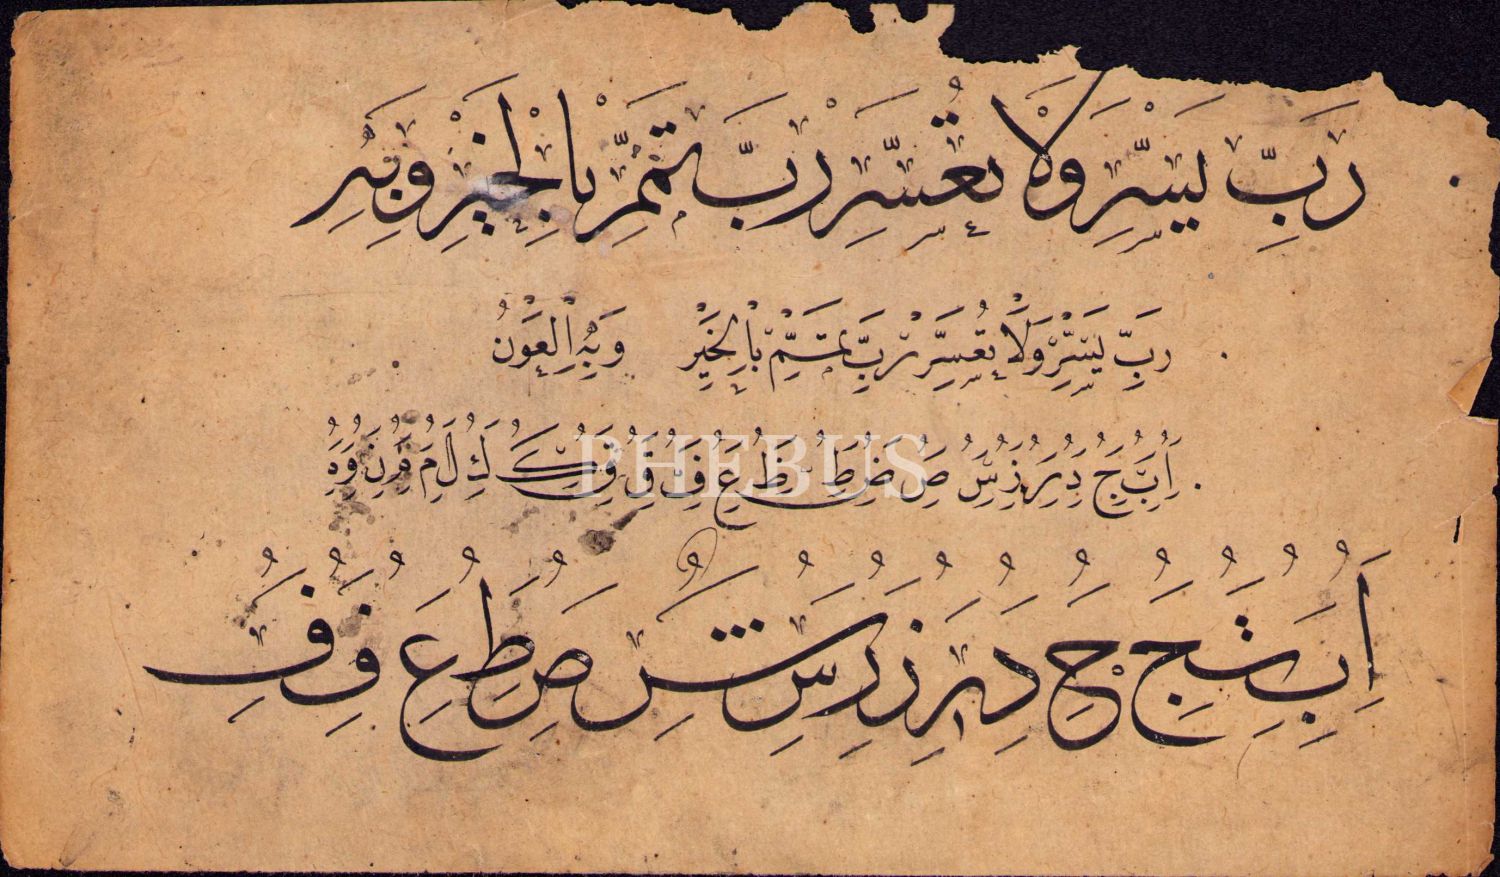 رَبِّ يَسِّرْ وَلَا تُعَسِّرْ رَبِّ تَمِّمْ بِالْخَيْرِ وَبِهِ
رَبِّ يَسِّرْ وَلَا تُعَسِّرْ رَبِّ تَمِّمْ بِالْخَيْرِ وَبِهِ الْعَوْنُ
ا ب ج د ر ز س ص ض ط ظ ع ف ق ك ل م ن و ه
PHEBUS
ا ب ث ج ح د ر ز ر س ش ص ط ع ف